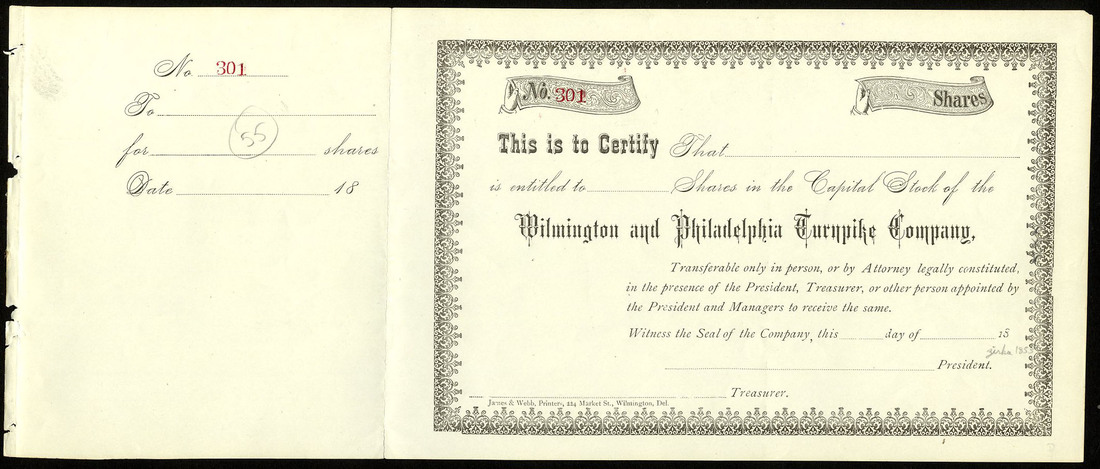 No. 301
To
55
for shares
Date 18
No. 301
Shares
This is to Certify That
is entitled to Shares in the Capital Stock of the
Wilmington and Philadelphia Turnpike Company,
Transferable only in person, or by Attorney legally constituted,
in the presence of the President, Treasurer, or other person appointed by
the President and Managers to receive the same.
Witness the Seal of the Company, this day of 18
President.
Treasurer.
James & Webb, Printers, 224 Market St., Wilmington, Del.